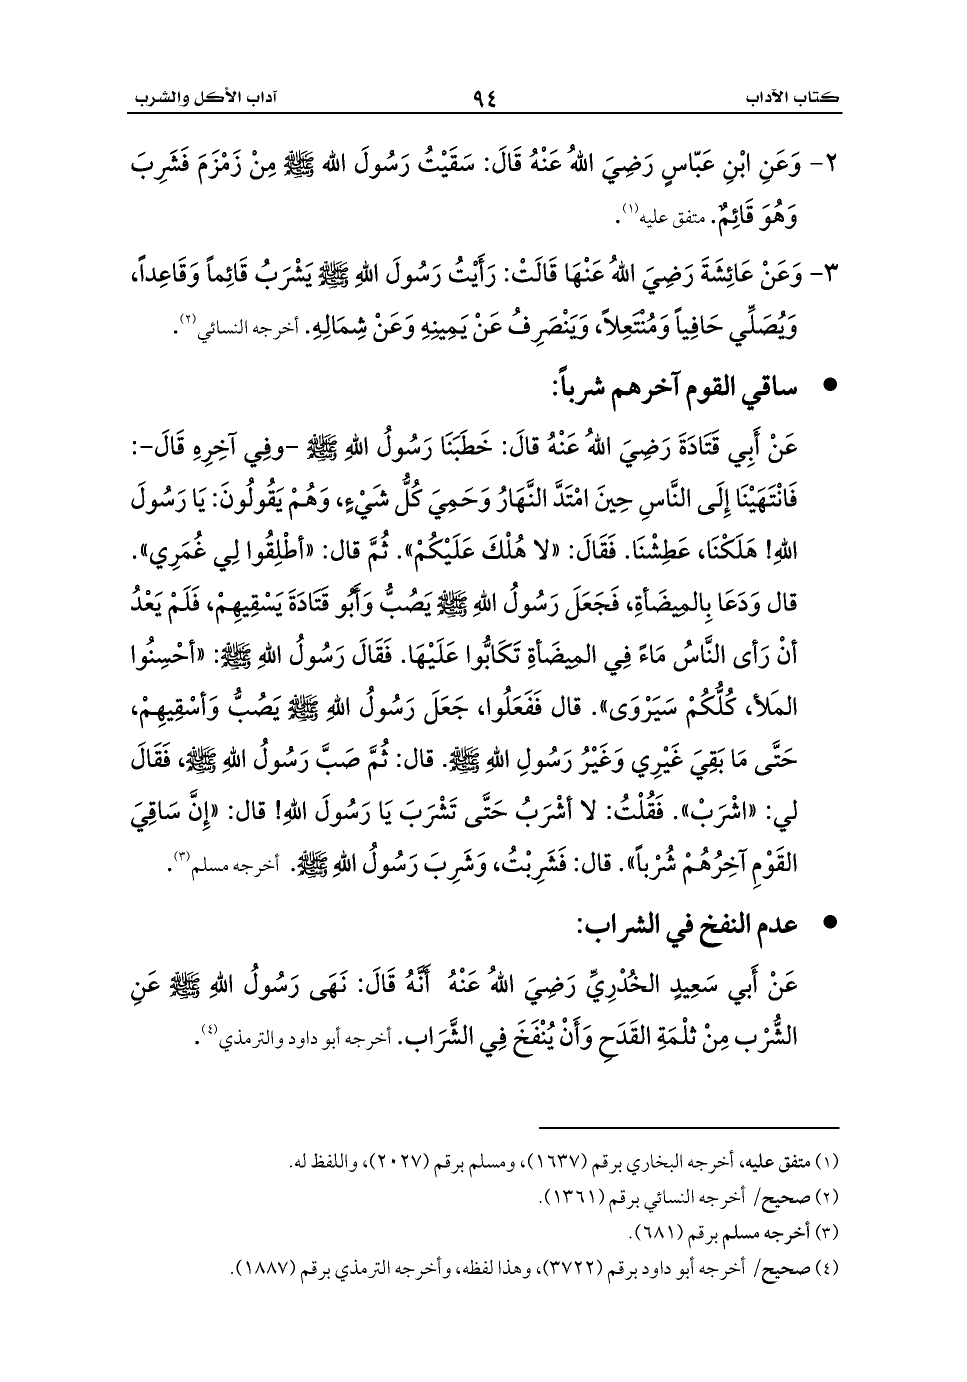 كتاب الآداب ٩٤ آداب الأكل والشرب
٢- وَعَنِ ابْنِ عَبّاسٍ رَضِيَ اللهُ عَنْهُ قَالَ: سَقَيْتُ رَسُولَ الله ﷺ مِنْ زَمْزَمَ فَشَرِبَ
وَهُوَ قَائِمٌ. متفق عليه(١).
٣- وَعَنْ عَائِشَةَ رَضِيَ اللهُ عَنْهَا قَالَتْ: رَأَيْتُ رَسُولَ اللهِ ﷺ يَشْرَبُ قَائِماً وَقَاعِداً،
وَيُصَلِّي حَافِياً وَمُنْتَعِلاً، وَيَنْصَرِفُ عَنْ يَمِينِهِ وَعَنْ شِمَالِهِ. أخرجه النسائي(٢).
● ساقي القوم آخرهم شرباً:
عَنْ أَبِي قَتَادَةَ رَضِيَ اللهُ عَنْهُ قالَ: خَطَبَنَا رَسُولُ اللهِ ﷺ -وفِي آخِرِهِ قَالَ-:
فَانْتَهَيْنَا إِلَى النَّاسِ حِينَ امْتَدَّ النَّهَارُ وَحَمِيَ كُلُّ شَيْءٍ، وَهُمْ يَقُولُونَ: يَا رَسُولَ
اللهِ! هَلَكْنَا، عَطِشْنَا. فَقَالَ: «لا هُلْكَ عَلَيْكُمْ». ثُمَّ قال: «أطْلِقُوا لِي غُمَرِي».
قال وَدَعَا بِالمِيضَأةِ، فَجَعَلَ رَسُولُ اللهِ ﷺ يَصُبُّ وَأبُو قَتَادَةَ يَسْقِيهِمْ، فَلَمْ يَعْدُ
أنْ رَأى النَّاسُ مَاءً فِي المِيضَأةِ تَكَابُّوا عَلَيْهَا. فَقَالَ رَسُولُ اللهِ ﷺ: «أحْسِنُوا
المَلأ، كُلُّكُمْ سَيَرْوَى». قال فَفَعَلُوا، جَعَلَ رَسُولُ اللهِ ﷺ يَصُبُّ وَأسْقِيهِمْ،
حَتَّى مَا بَقِيَ غَيْرِي وَغَيْرُ رَسُولِ اللهِ ﷺ. قال: ثُمَّ صَبَّ رَسُولُ اللهِ ﷺ، فَقَالَ
لي: «اشْرَبْ». فَقُلْتُ: لا أشْرَبُ حَتَّى تَشْرَبَ يَا رَسُولَ اللهِ! قال: «إنَّ سَاقِيَ
القَوْمِ آخِرُهُمْ شُرْباً». قال: فَشَرِبْتُ، وَشَرِبَ رَسُولُ اللهِ ﷺ. أخرجه مسلم(٣).
● عدم النفخ في الشراب:
عَنْ أَبي سَعِيدٍ الخُدْرِيِّ رَضِيَ اللهُ عَنْهُ أنَّهُ قَالَ: نَهَى رَسُولُ اللهِ ﷺ عَنِ
الشُّرْبِ مِنْ ثلْمَةِ القَدَحِ وَأَنْ يُنْفَخَ فِي الشَّرَابِ. أخرجه أبو داود والترمذي(٤).
(١) متفق عليه، أخرجه البخاري برقم (١٦٣٧)، ومسلم برقم (٢٠٢٧)، واللفظ له.
(٢) صحيح/ أخرجه النسائي برقم (١٣٦١).
(٣) أخرجه مسلم برقم (٦٨١).
(٤) صحيح/ أخرجه أبو داود برقم (٣٧٢٢)، وهذا لفظه، وأخرجه الترمذي برقم (١٨٨٧).